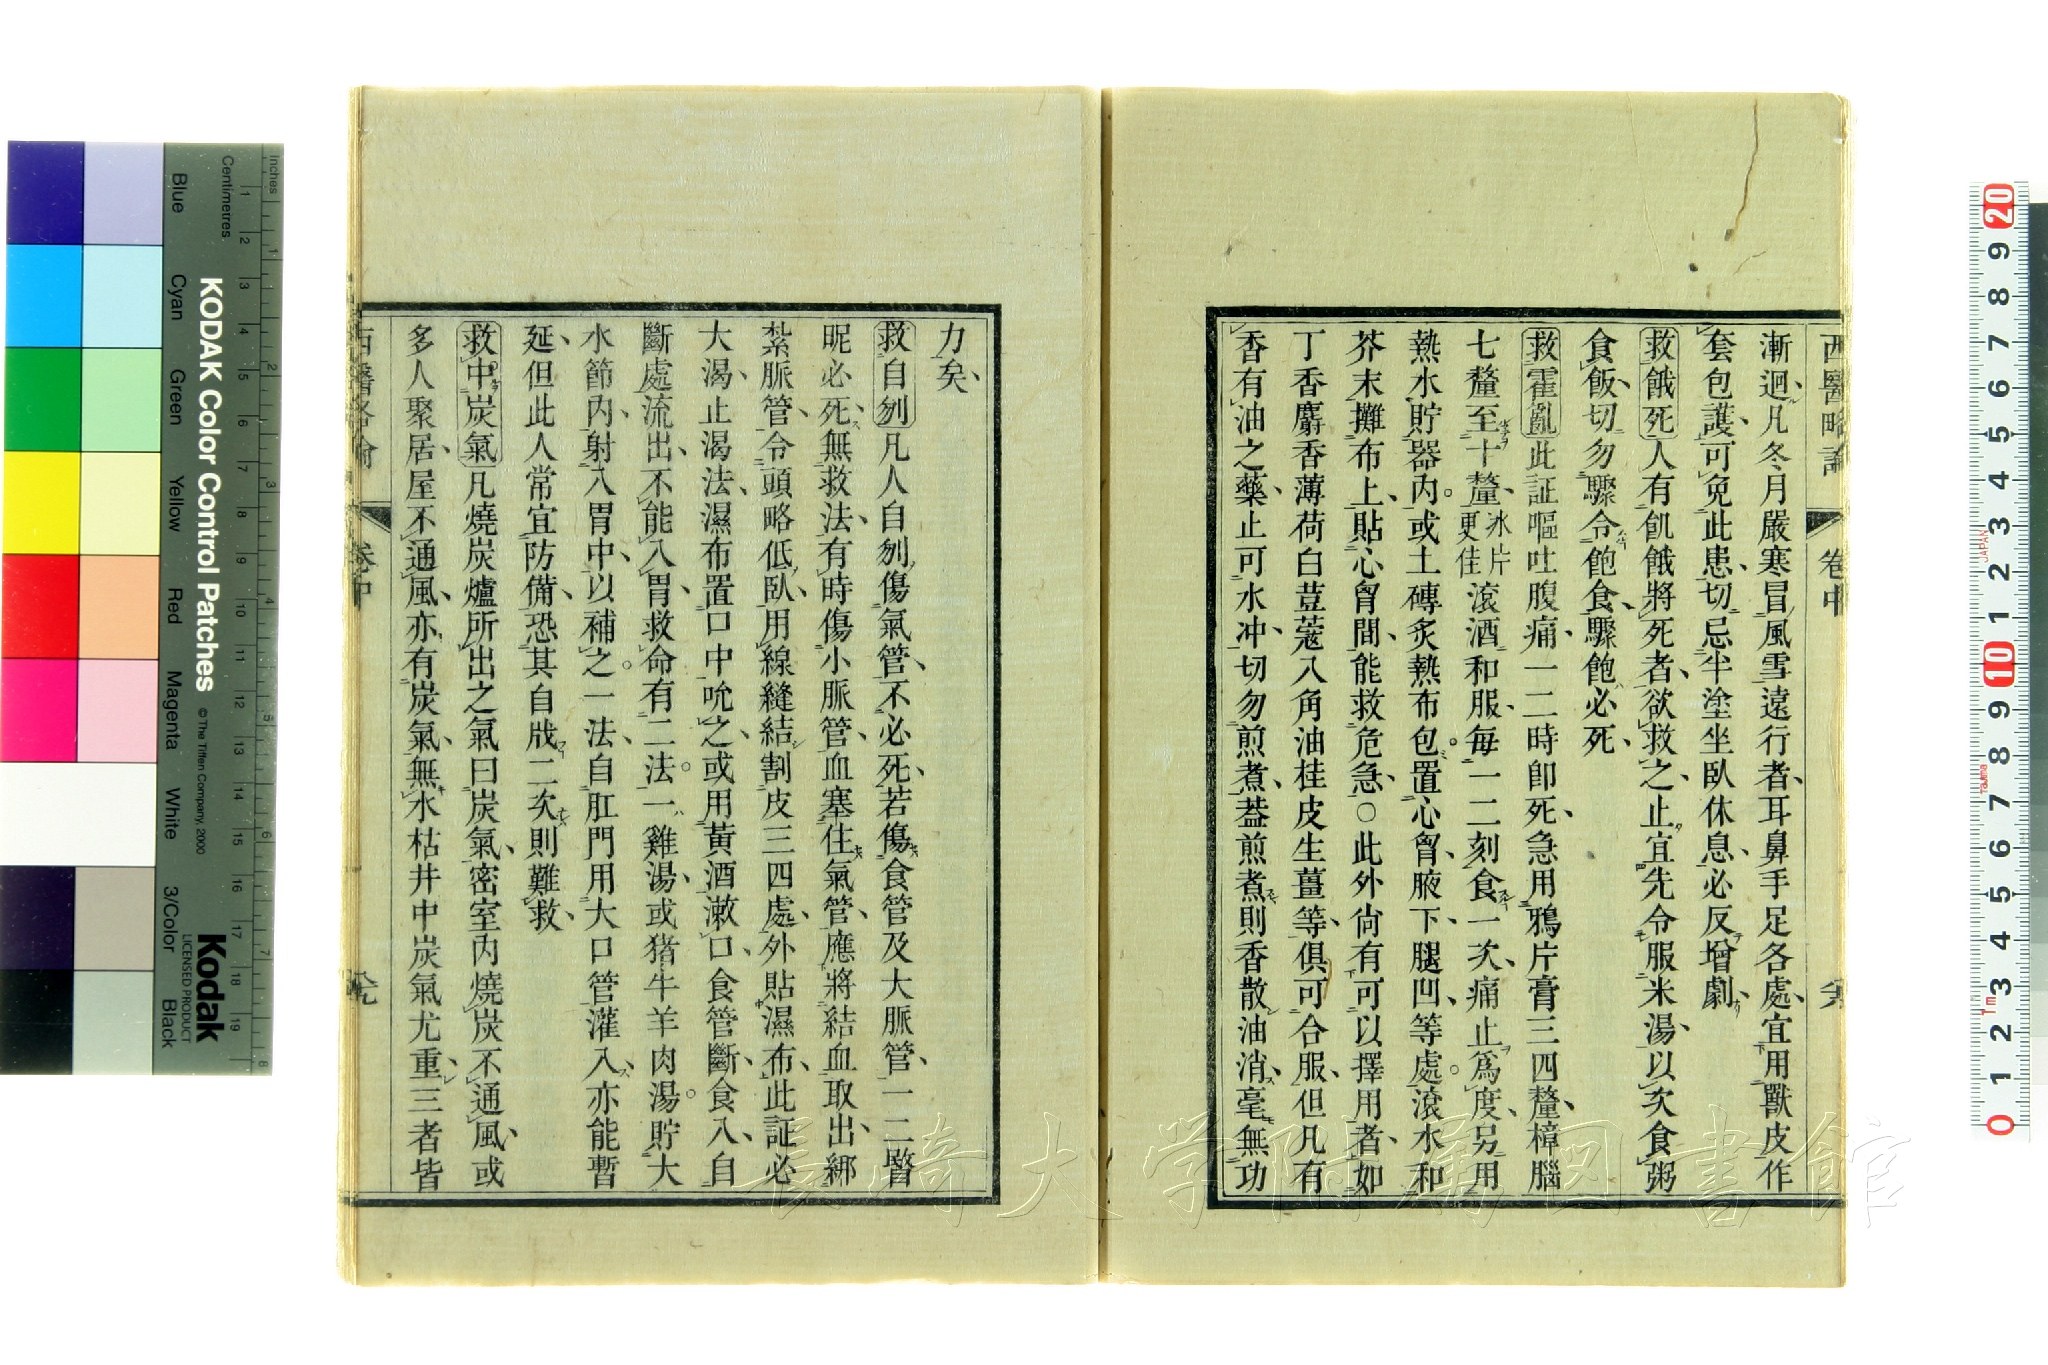 西醫略論
卷中
漸迴凡冬月嚴寒冒風雪遠行者耳鼻手足各處宜用獸皮作
套包護可免此患切忌半塗坐臥休息必反增劇
救餓死人有飢餓將死者欲救之止宜先令服米湯以次食粥
食飯切勿驟令飽食驟飽必死
救霍亂此証嘔吐腹痛一二時卽死急用鴉片膏三四釐樟腦
七釐至十釐冰片更佳滚酒和服每一二刻食一次痛止爲度另用
熱水貯器內或土磚炙熱布包置心胷腋下腿凹等處滚水和
芥末攤布上貼心胷間能救危急○此外尙有可以擇用者如
丁香麝香薄荷白荳蔻八角油桂皮生薑等俱可合服但凡有
香有油之藥止可水冲切勿煎煮葢煎煮則香散油消毫無功
力矣
救自刎凡人自刎傷氣管不必死若傷食管及大脈管一二醫
昵必死無救法有時傷小脈管血塞住氣管應將結血取出綁
紮脈管令頭略低臥用線縫結割皮三四處外貼濕布此証必
大渴止渴法濕布置口中吮之或用黃酒漱口食管斷食入自
斷處流出不能入胃救命有二法一雞湯或猪牛羊肉湯貯大
水節內射入胃中以補之一法自肛門用大口管灌入亦能暫
延但此人常宜防備恐其自戕二次則難救
救中炭氣凡燒炭爐所出之氣曰炭氣密室內燒炭不通風或
多人聚居屋不通風亦有炭氣無水枯井中炭氣尤重三者皆
西醫略論
卷中
KODAK Color Control Patches
© The Tiffen Company, 2000
Kodak
LICENSED PRODUCT
Inches
Centimetres
Blue
Cyan
Green
Yellow
Red
Magenta
White
3/Color
Black
1 2 3 4 5 6 7 8 9 10 11 12 13 14 15 16 17 18 19
1 2 3 4 5 6 7 8
20 9 8 7 6 5 4 3 2 1 10 9 8 7 6 5 4 3 2 1 0
JAPAN
長崎大学附属図書館